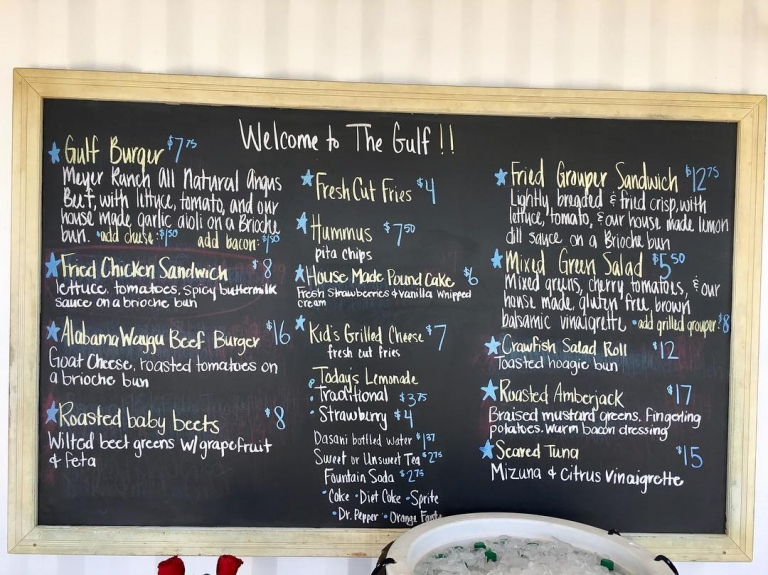 Welcome to The Gulf!!
Gulf Burger $7.75
Meyer Ranch All Natural Angus
Beef, with lettuce, tomato, and our
house made garlic aioli on a Brioche
bun. *add cheese: $1.50 add bacon: $1.50
Fried Chicken Sandwich $8
lettuce, tomatoes, spicy buttermilk
sauce on a brioche bun
Alabama Wagyu Beef Burger $16
Goat Cheese, roasted tomatoes on
a brioche bun
Roasted baby beets $8
Wilted beet greens w/grapefruit
& feta
Fresh Cut Fries $4
Hummus $7.50
pita chips
House Made Pound Cake $6
Fresh strawberries & vanilla whipped
cream
Kid's Grilled Cheese $7
fresh cut fries
Today's Lemonade
Traditional $3.75
Strawberry $4
Dasani bottled water $1.37
Sweet or Unsweet Tea $2.75
Fountain Soda $2.75
Coke • Diet Coke • Sprite
Dr. Pepper • Orange Fanta
Fried Grouper Sandwich $12.75
Lightly breaded & fried crisp, with
lettuce, tomato, & our house made lemon
dill sauce on a Brioche bun
Mixed Green Salad $5.50
Mixed greens, cherry tomatoes, & our
house made, gluten free brown
balsamic vinaigrette *add grilled grouper: $8
Crawfish Salad Roll $12
Toasted hoagie bun
Roasted Amberjack $17
Braised mustard greens, Fingerling
potatoes, warm bacon dressing
Seared Tuna $15
Mizuna & Citrus Vinaigrette